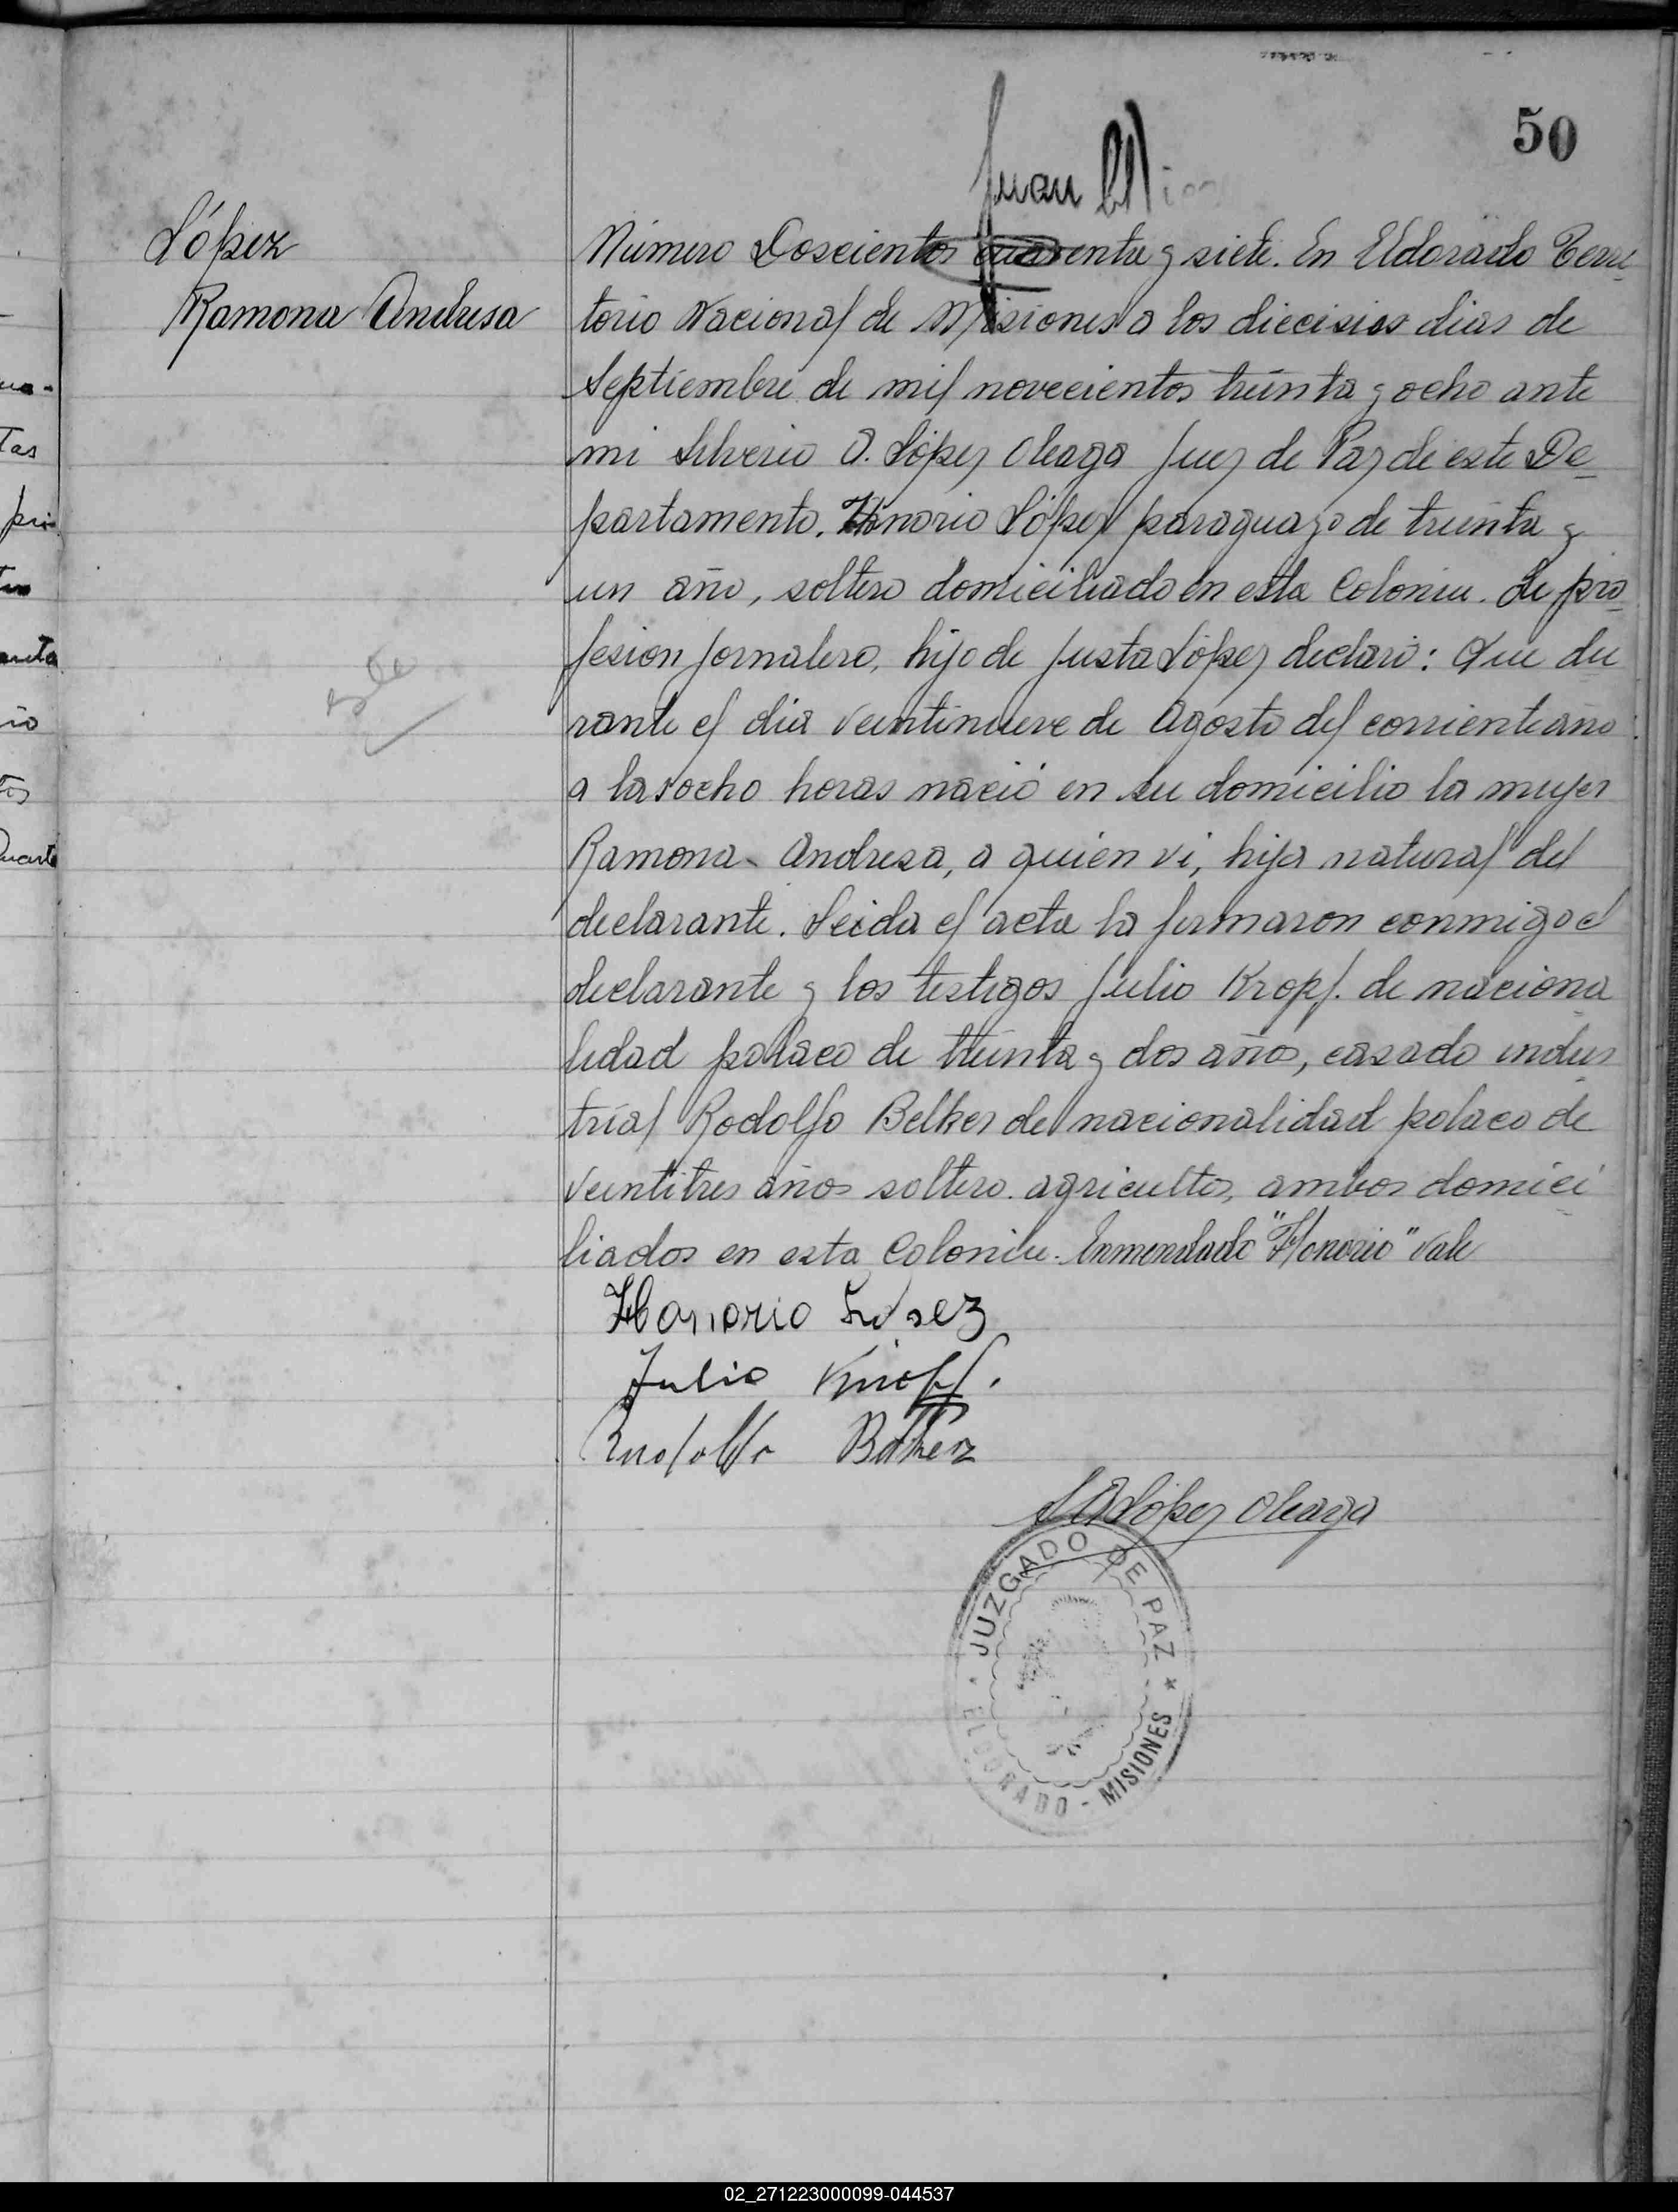 50
Juan
López
Ramona Andresa
Número Doscientos cuarenta y siete. En Eldorado Terri
torio Nacional de Misiones a los dieciseis dias de
Septiembre de mil novecientos treinta y ocho ante
mi Silverio O. López Oleaga Juez de Paz de este De
partamento. Honorio López paraguayo de treinta y
un año, soltero domiciliado en esta Colonia. de pro
fesion jornalero, hijo de Justa López declaró: Que du
rante el dia veintinueve de Agosto del corriente año
a las ocho horas nació en su domicilio la mujer
Ramona Andresa, a quien vi, hija natural del
declarante. Leida el acta la firmaron conmigo el
declarante y los testigos Julio Kropf. de naciona
lidad polaco de treinta y dos años, casado indus
trial Rodolfo Belker de nacionalidad polaco de
veintitres años soltero. agricultor, ambos domici
liados en esta Colonia. Enmendado "Honorio" Vale
Honorio López
Julio Knopf.
Rudolfo
S O López Oleaga
JUZGADO DE PAZ
ELDORADO - MISIONES
02_271223000099-044537